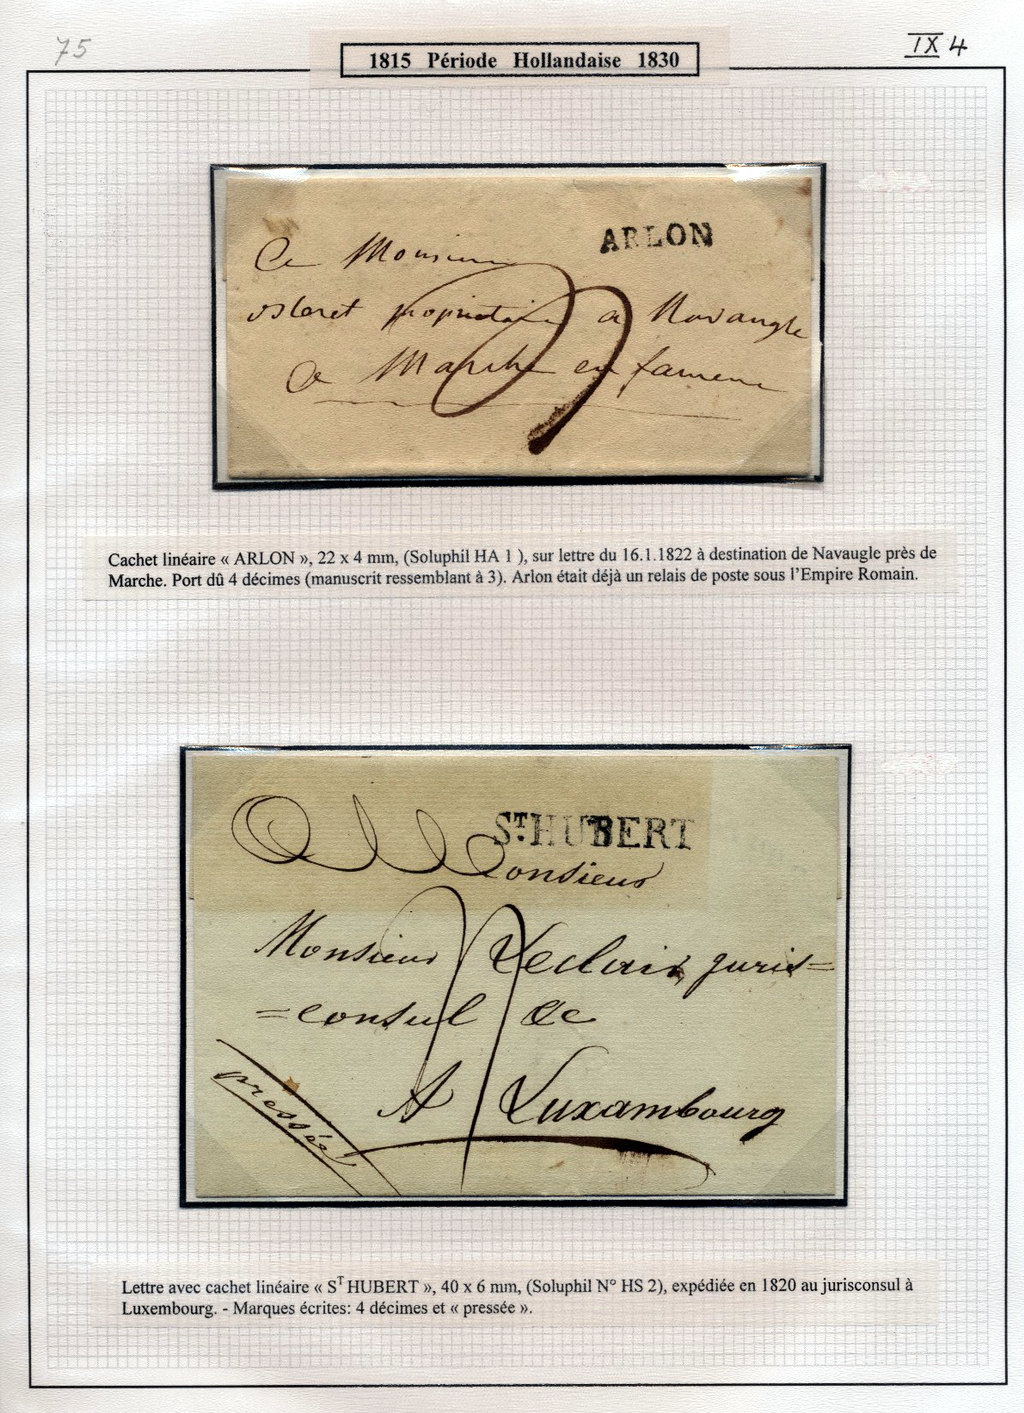 75
IX 4
1815 Période Hollandaise 1830
ARLON
Monsieur
propriétaire a Navaugle
Marche en famene
Cachet linéaire « ARLON », 22 x 4 mm, (Soluphil HA 1 ), sur lettre du 16.1.1822 à destination de Navaugle près de
Marche. Port dû 4 décimes (manuscrit ressemblant à 3). Arlon était déjà un relais de poste sous l'Empire Romain.
ST. HUBERT
Monsieur
Monsieur Leclair, juris=
=consul &c
A Luxambourg
pressée
Lettre avec cachet linéaire « ST HUBERT », 40 x 6 mm, (Soluphil N° HS 2), expédiée en 1820 au jurisconsul à
Luxembourg. - Marques écrites: 4 décimes et « pressée ».